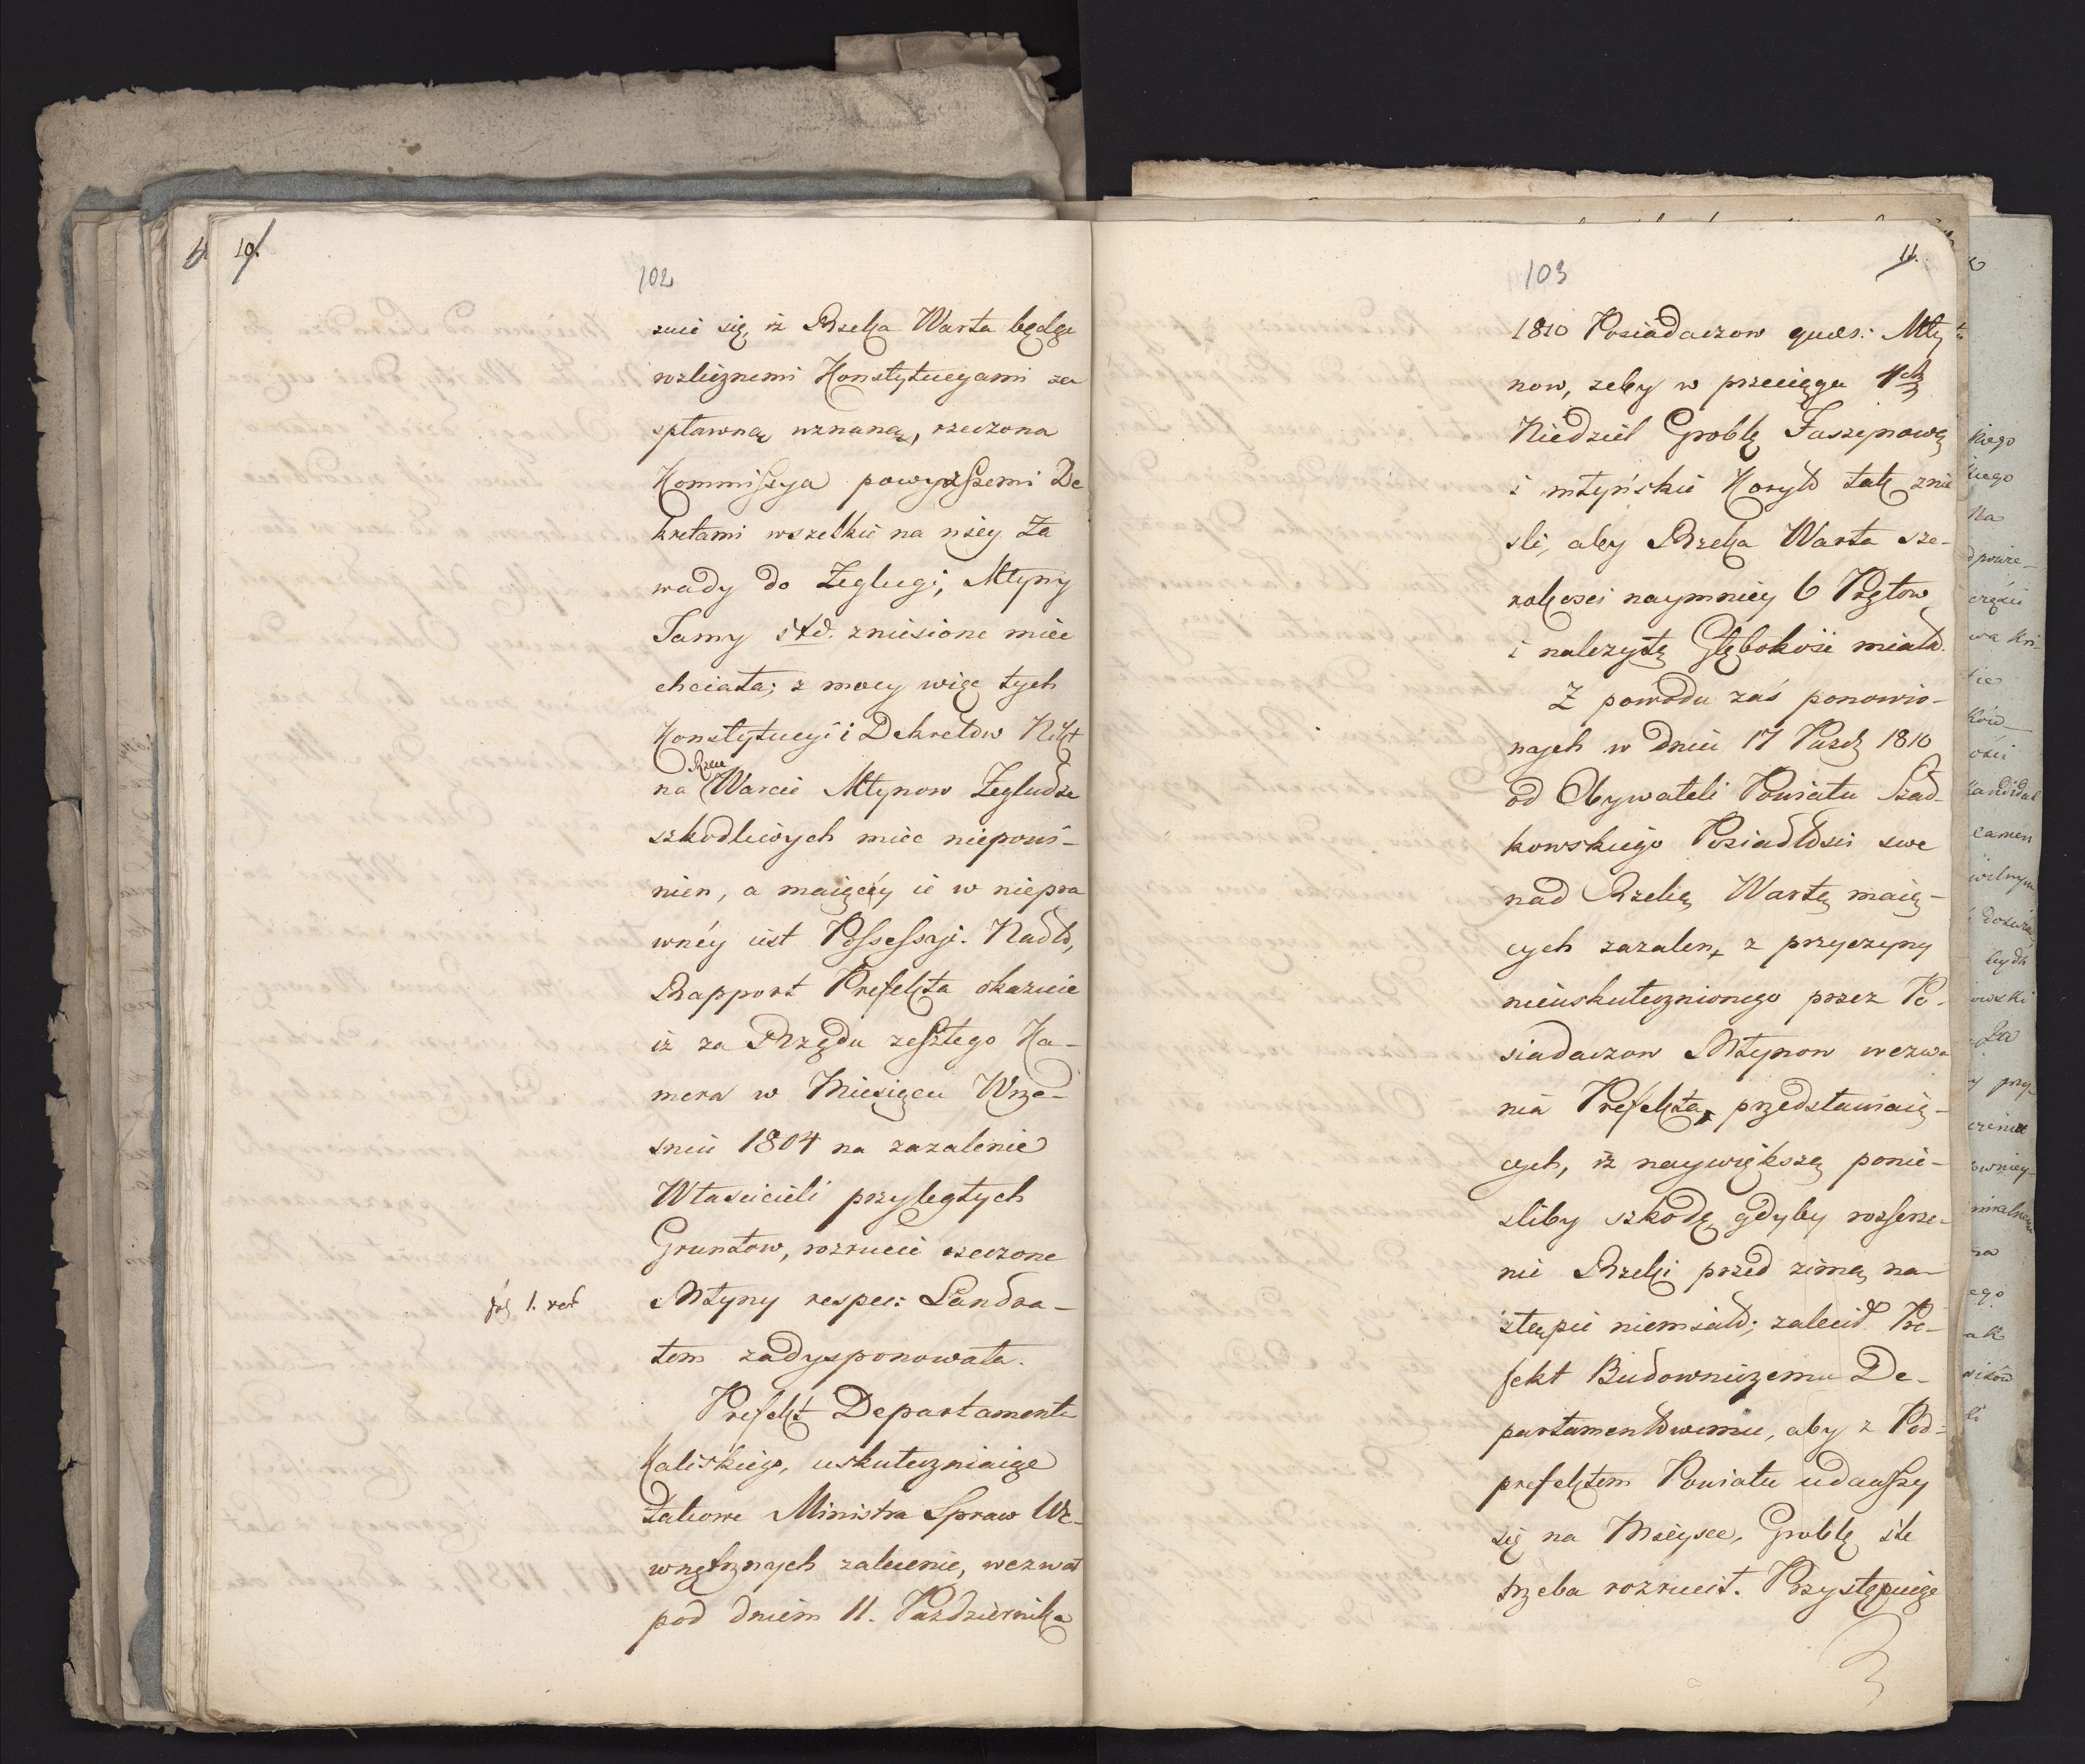 10.
102
zuie się, iż Rzeka Warta będąc
rozlicznemi Konstytucyami za
spławną uznaną, rzeczona
Kommissya powyższemi De
kretami wszelkie na niey Za
wady do Żeglugi, Młyny
Tamy itd. zniesione mieć
chciała; z mocy więc tych
Konstytucyi i Dekretów Nikt
Rzece
na Warcie Młynow Żegludze
szkodliwych mieć niepowi-
nien, a maiący ie w niepra
wnéy iest Possessyi. Nadto,
Rapport Prefekta okazuie
iż za Rządu zeszłego Ka-
mera w Miesiącu Wrze-
sniu 1804 na zazalenie
Własciecieli przyległych
Gruntow, rozrucić rzeczone
fol 1. ver
Młyny respec: Landra-
tom zadysponowała.
Prefekt Departamentu
Kaliskiego, uskuteczniaiąc
takowe Ministra Spraw We-
wnętrznych zalecenie, wezwał
pod dniem 11. Pazdziernika
11.
103
1810 Posiadaczow ques: Mły
now, zeby w przeciągu 4ch
Niedziel Groblę Faszynową
i młyńskie Koryto tak znie
sli, aby Rzeka Warta sze-
rokosci naymniey 6 Prętow
i należytą Głębokość miała.
Z powodu zaś ponowio-
nych w dniu 17 Pazdz 1810
od Obywateli Powiatu Szad-
kowskiego Posiadłości swe
nad Rzeką Wartą maią-
cych zazalen, z przyczyny
nieuskutecznionego przez Po-
siadaczow Młynow wezwa
nia Prefekta, przedstawiaią-
cych, iż naywiększą ponie-
sliby szkodę, gdyby rozsze-
nie Rzeki przed zimą na-
stąpić niemiało; zalecił Pre-
fekt Budowniczemu De-
partamentowemu, aby z Pod-
prefektem Powiatu udawszy
się na Mieysce, Groblę ile
trzeba rozrucił. Przystępuiąc